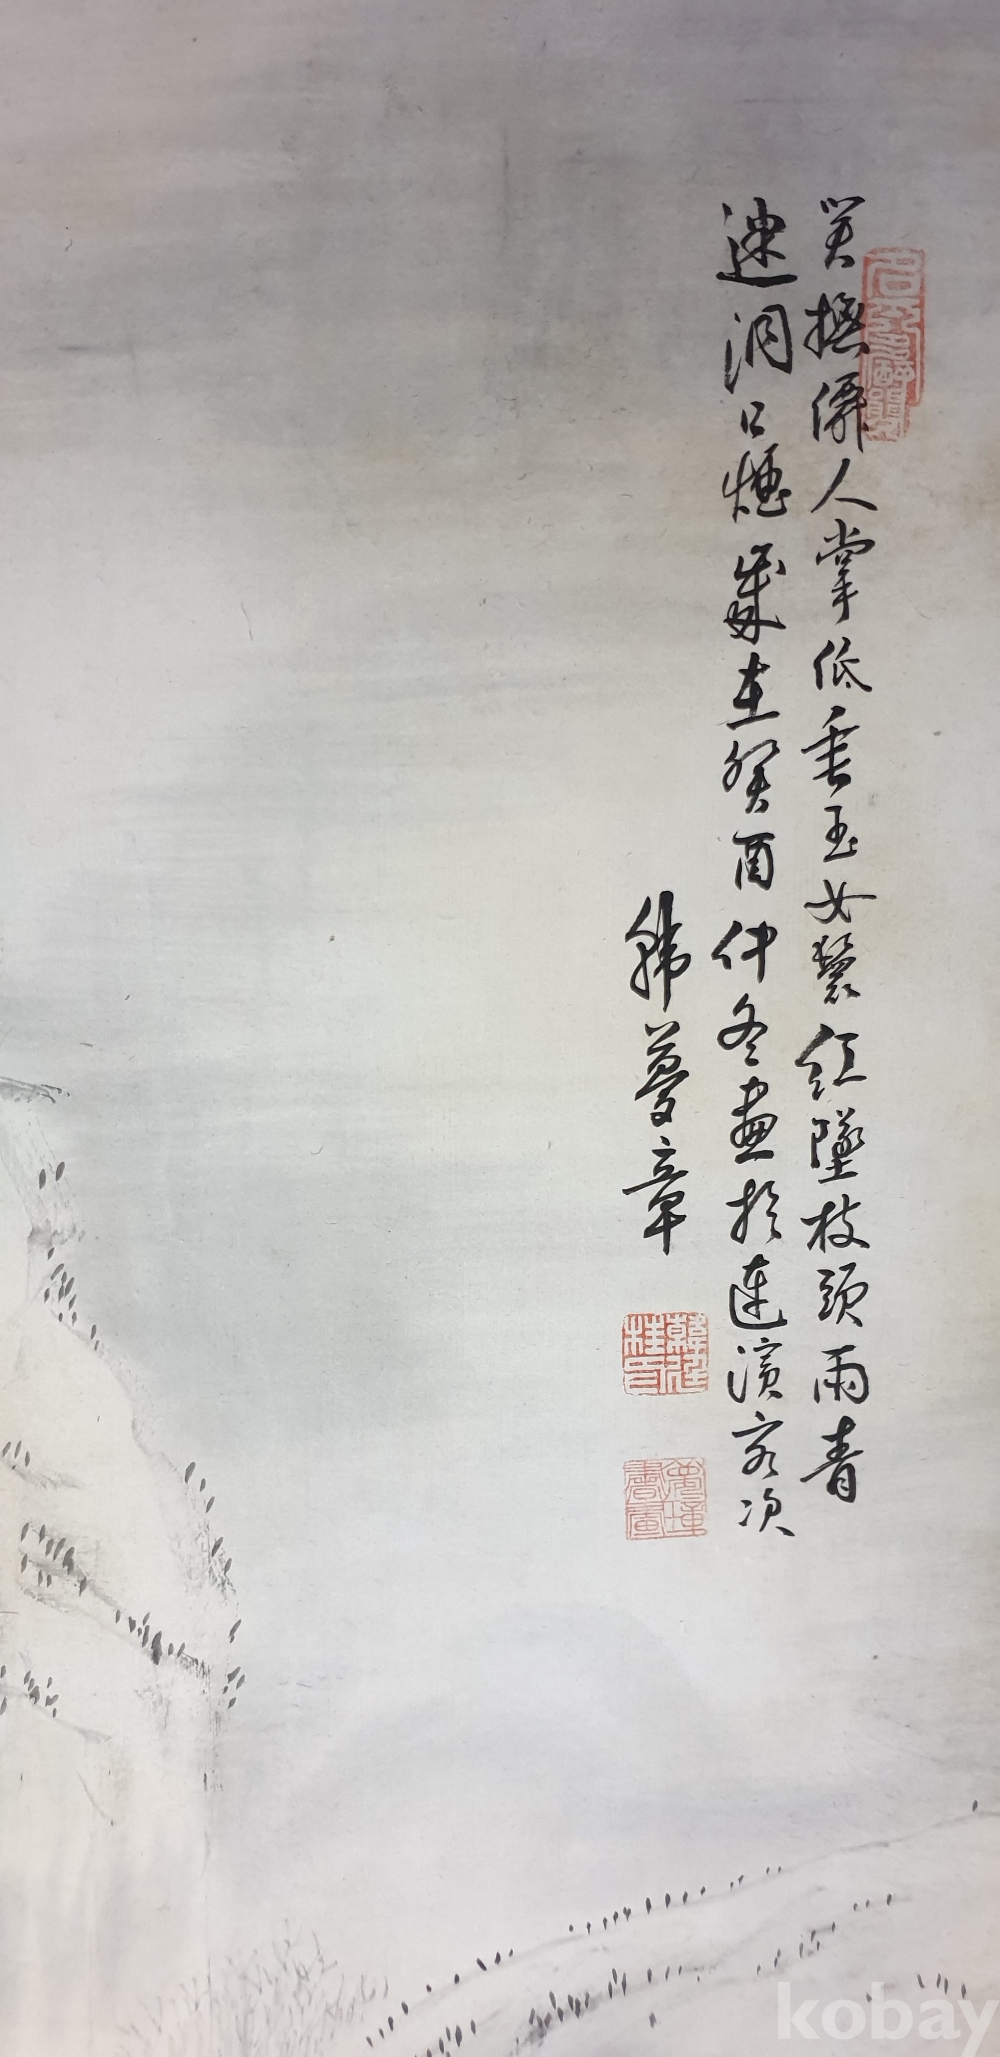 笑撫僊人掌低垂玉女鬟紅墜枝頭雨青
迷洞口煙歲在癸酉仲冬畫於連濱客次
韓夢章
kobay